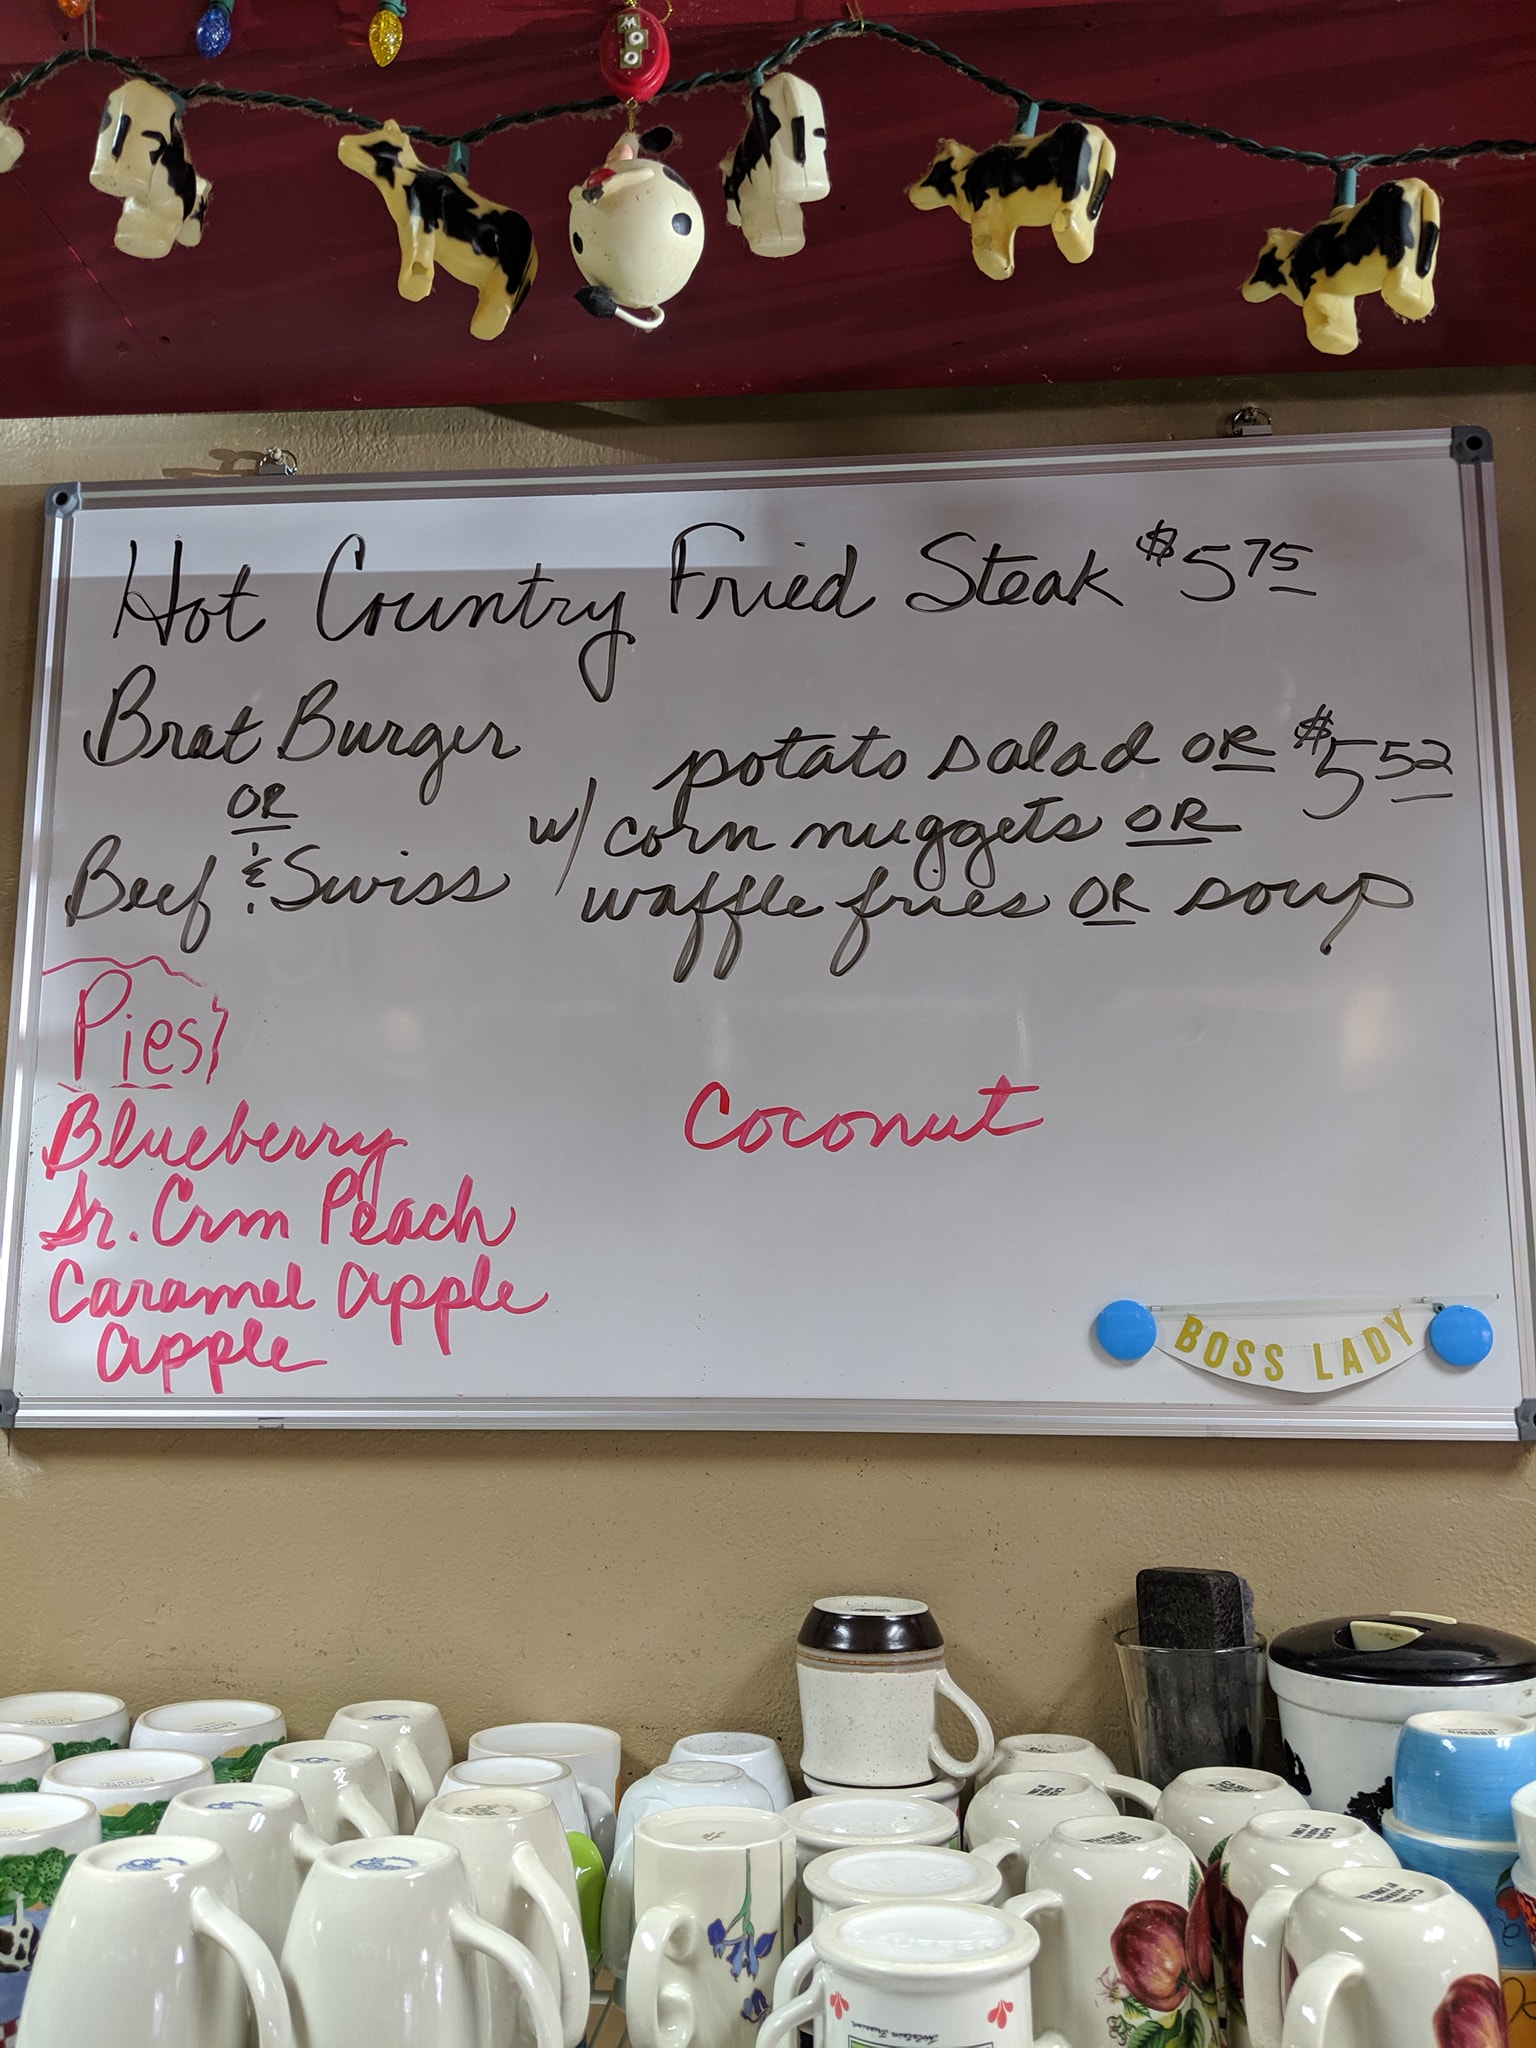 MOO
Hot Country Fried Steak $5.75
Brat Burger
OR
Beef & Swiss
w/
potato salad OR $5.52
corn nuggets OR
waffle fries OR soup
Pies
Blueberry
Sr. Crm Peach
Caramel apple
apple
Coconut
BOSS LADY